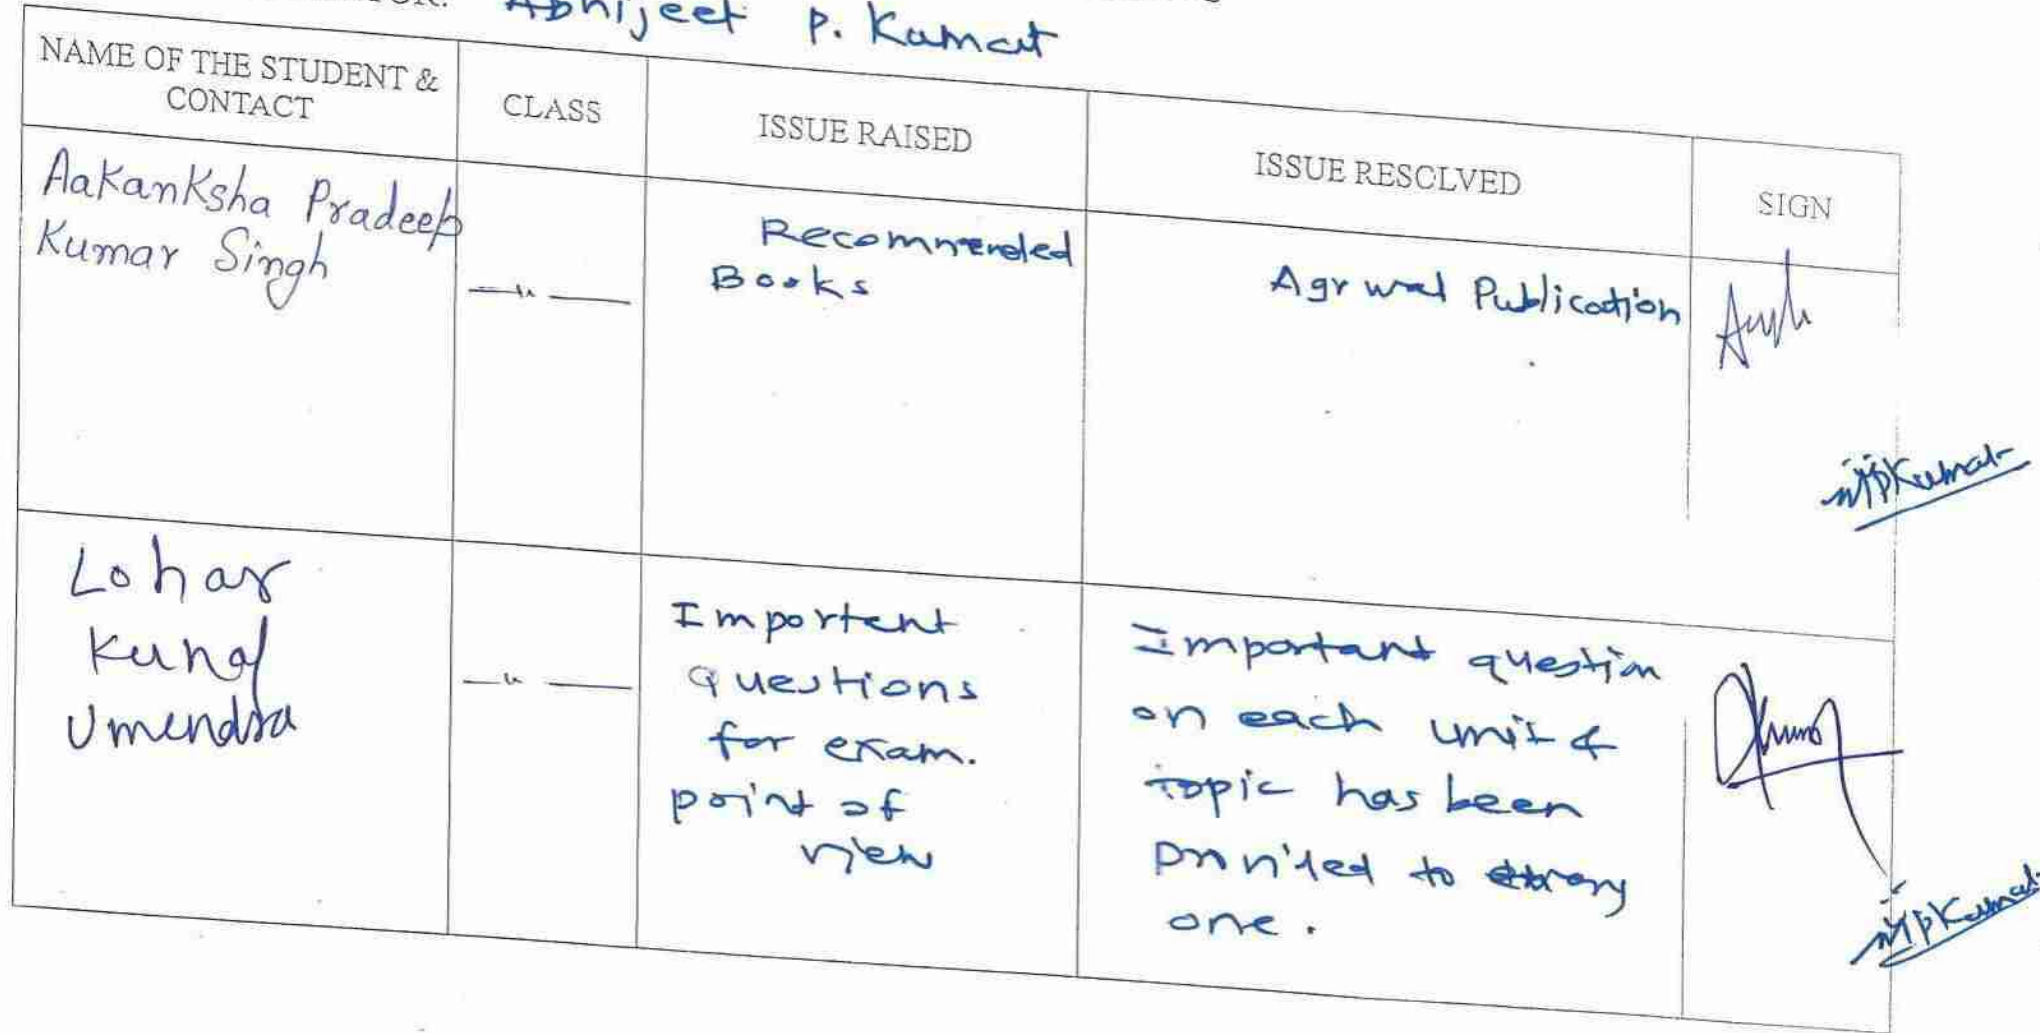 Abhijeet P. Kamat
NAME OF THE STUDENT &
CONTACT
CLASS
ISSUE RAISED
ISSUE RESOLVED
SIGN
Aakanksha Pradeep
Kumar Singh
—"—
Recommended
Books
Agrwal Publication
Lohar
Kunal
Umendra
—"—
Importent
Questions
for exam.
point of
view
Important question
on each unit &
topic has been
to
one.